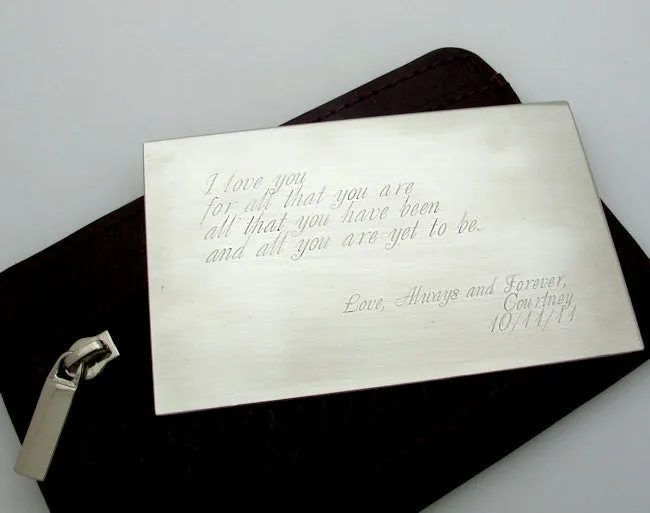 I love you
for all that you are
all that you have been
and all you are yet to be.
Love, Always and Forever,
Courtney
10/11/11